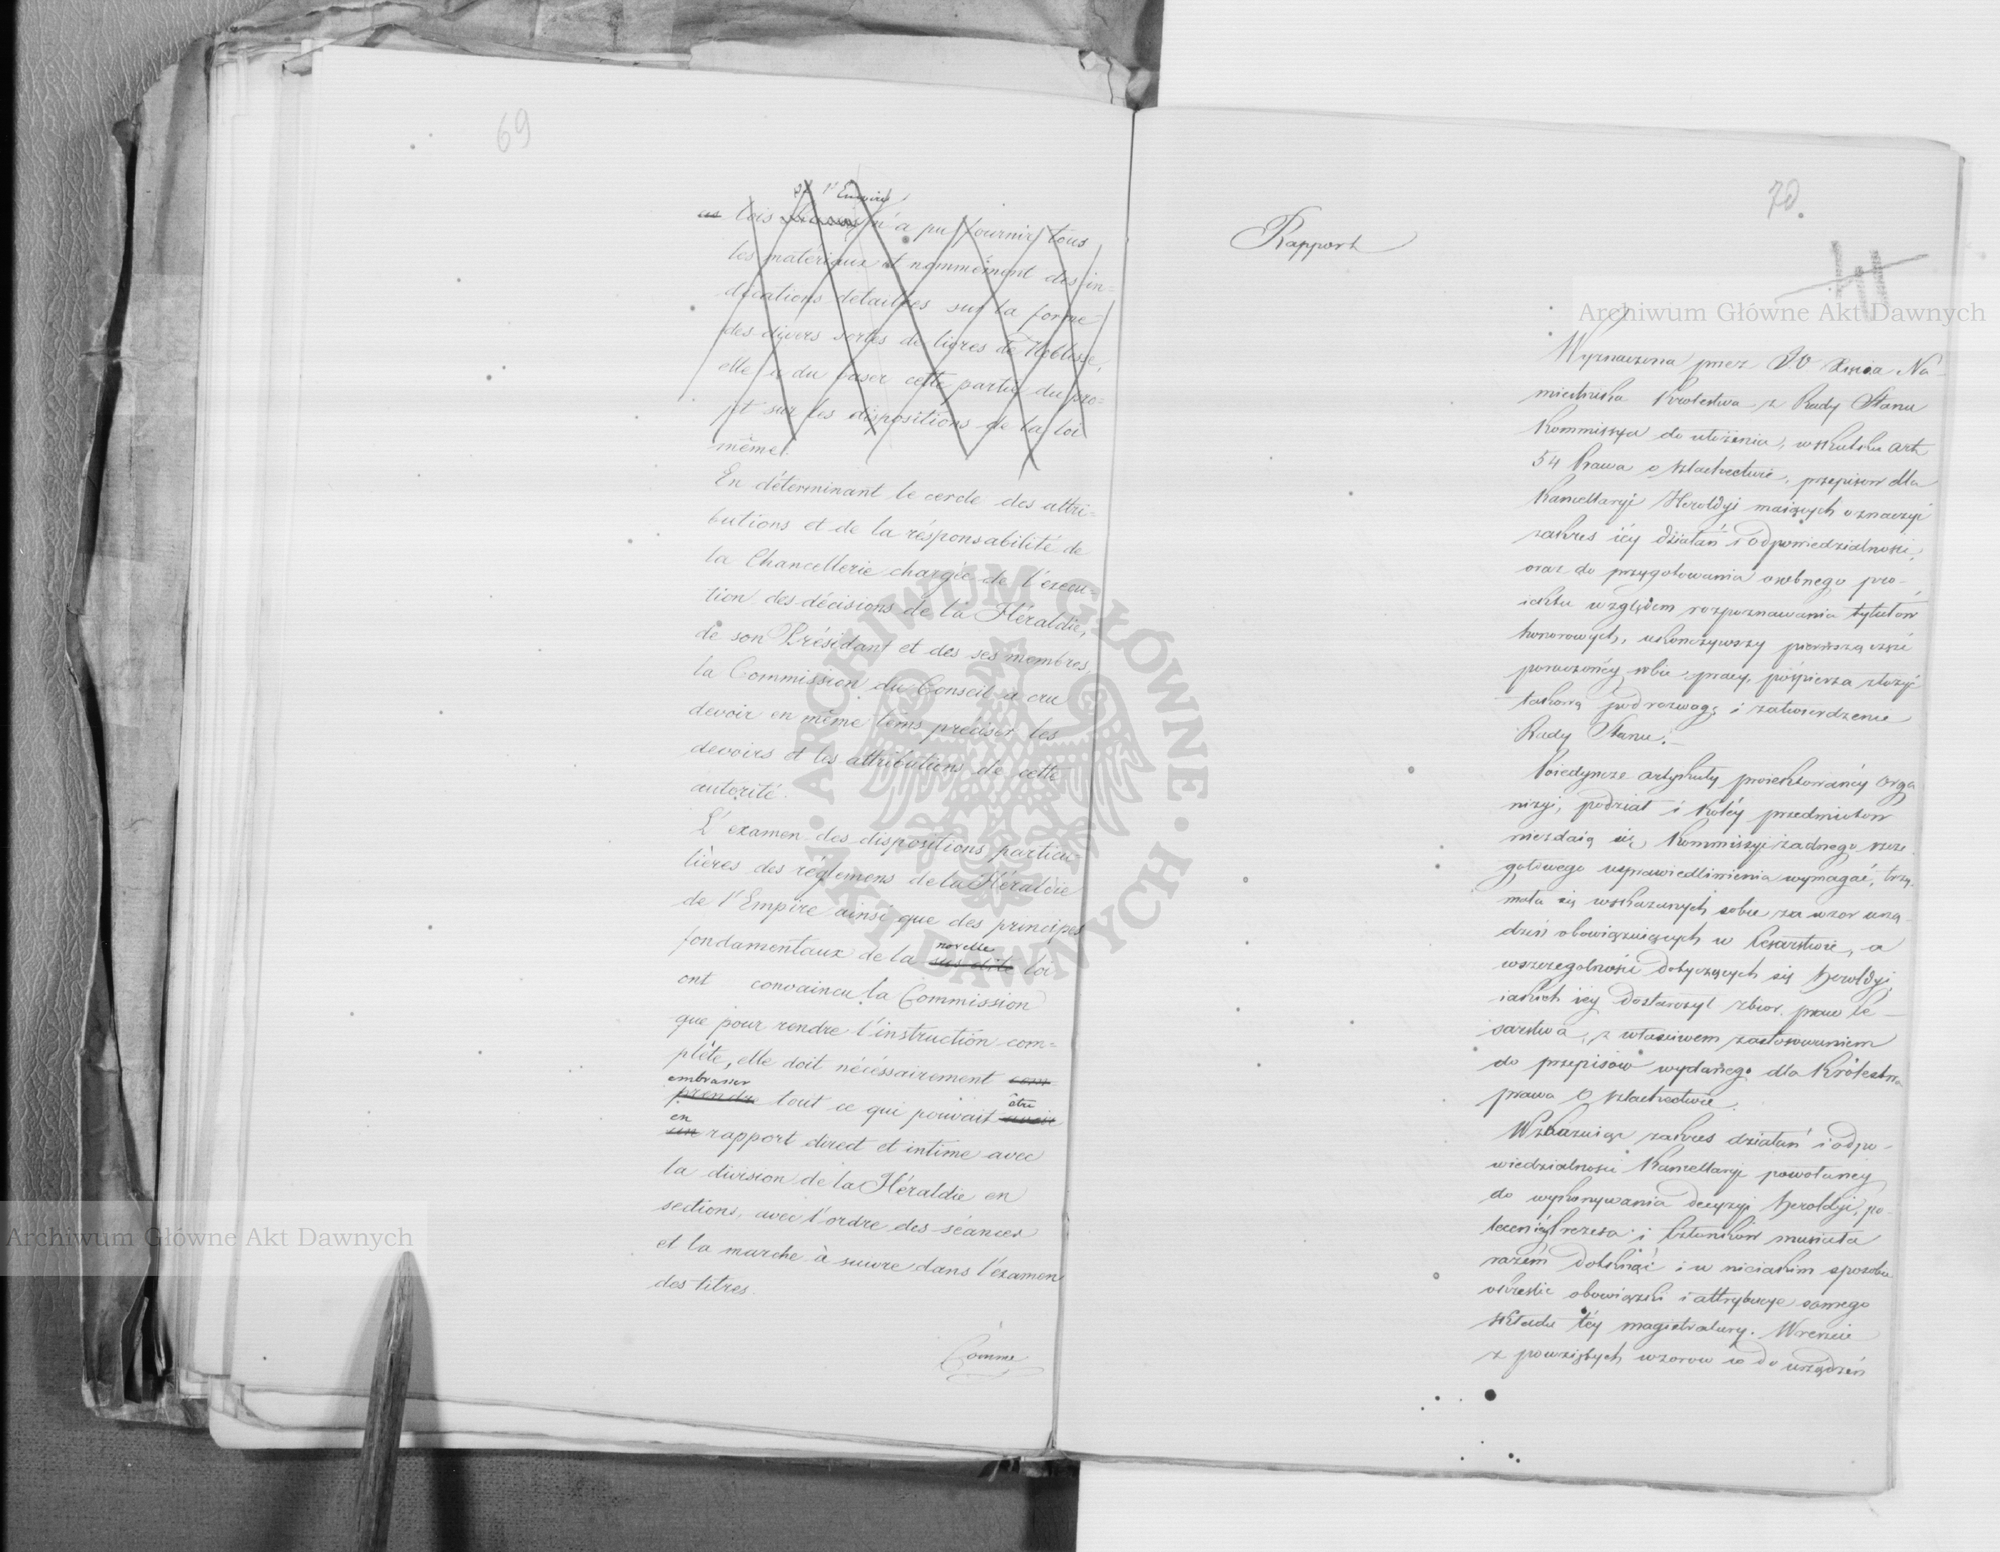 69
de l'Empire
lois n'a pu fournir tous
les matériaux et nommément des in=
dications détaillées sur la forme
des divers sortes de livres de Noblesse,
elle a du baser cette partie du pro=
jet sur les dispositions de la loi
même.
En déterminant le cercle des attri=
butions et de la résponsabilité de
la Chancellerie chargée de l'execu=
tion des décisions de la Héraldie,
de son Présidant et des ses membres,
la Commission du Conseil a cru
devoir en même tems préciser les
devoirs et les attributions de cette
autorité.
L'examen des dispositions particu=
lières des réglemens de la Héraldie
de l'Empire ainsi que des principes
novelle
fondamentaux de la sus dite loi
ont convaincu la Commission
que pour rendre l'instruction com=
plète, elle doit nécéssairement com
embrasser
prendre tout ce qui pouvait avoir
être
en
un rapport direct et intime avec
la division de la Héraldie en
sections, avec l'ordre des séances
et la marche à suivre dans l'examen
des titres.
Comme
70.
Rapport
Wyznaczona przez JO Xięcia Na-
miestnika Królestwa z Rady Stanu
Kommissya do ułożenia, w skutku art
54 Prawa o szlachectwie, przepisów dla
Kancellaryi Heroldyi maiących oznaczyć
zakres iéy działań i odpowiedzialności,
oraz do przygotowania osobnego pro-
iektu względem rozpoznawania tytułów
honorowych, ukończywszy pierwszą część
poruczonéy sobie pracy, pośpiesza złożyć
takową pod rozwagę i zatwierdzenie
Rady Stanu.
Poiedyncze artykuły proiektowanéy orga
nizyi, podział i koléy przedmiotów
niezdaią się Kommissyi żadnego szcze-
gółowego usprawiedliwienia wymagać, trzy-
mała się wskazanych sobie za wzór urzą-
dzeń obowiązuiących w Cesarstwie, a
wszczególności dotyczących się Heroldyi,
iakich iéy dostarczył zbiór praw Ce-
sarstwa, z właściwem zastosowaniem
do przepisów wydanego dla Królestwa
prawa o szlachectwie.
Wskazuiąc zakres działań i odpo-
wiedzialności Kancellaryi powołanéy
do wykonywania decyzyi Heroldyi, po-
leceń Prezesa i Członków musiała
razem dotknąć i w nieiakim sposobie
określić obowiązki i attrybucye samego
składu téy magistratury. Wreście
z powziętych wzorów co do urządzeń
Archiwum Główne Akt Dawnych
Archiwum Główne Akt Dawnych
ARCHIWUM GŁÓWNE · AKT DAWNYCH ·